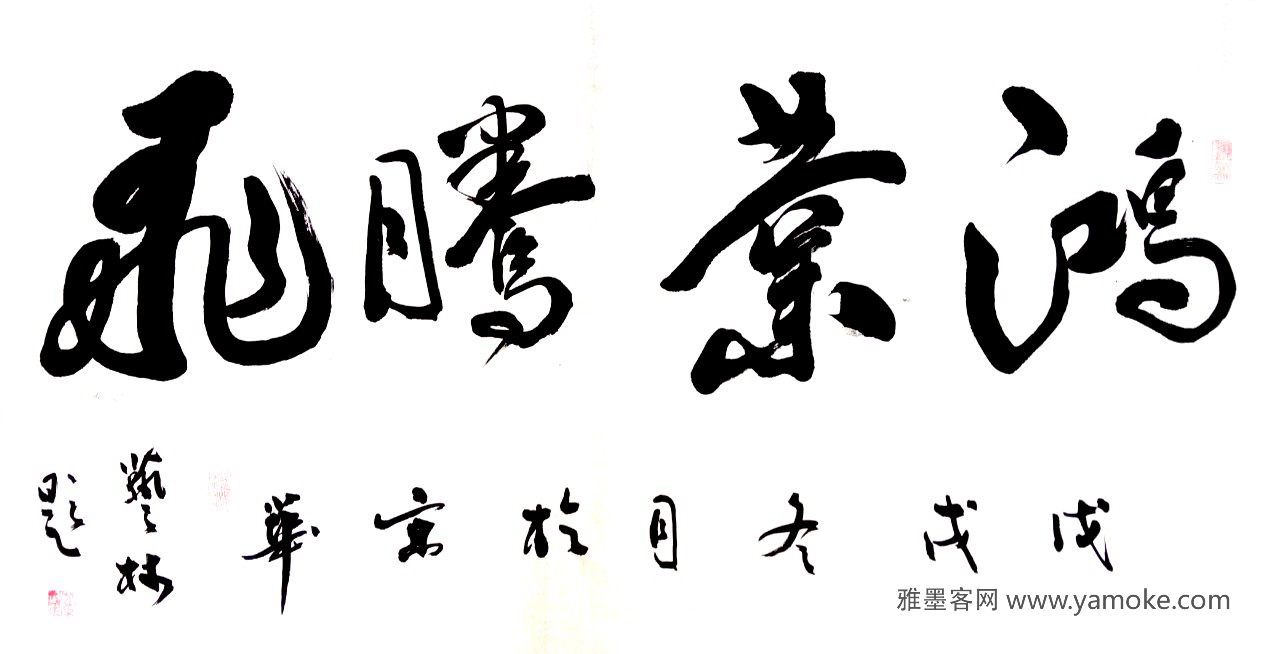 鴻業騰飛
戊戌冬月於京華
藝林
題
雅墨客网 www.yamoke.com